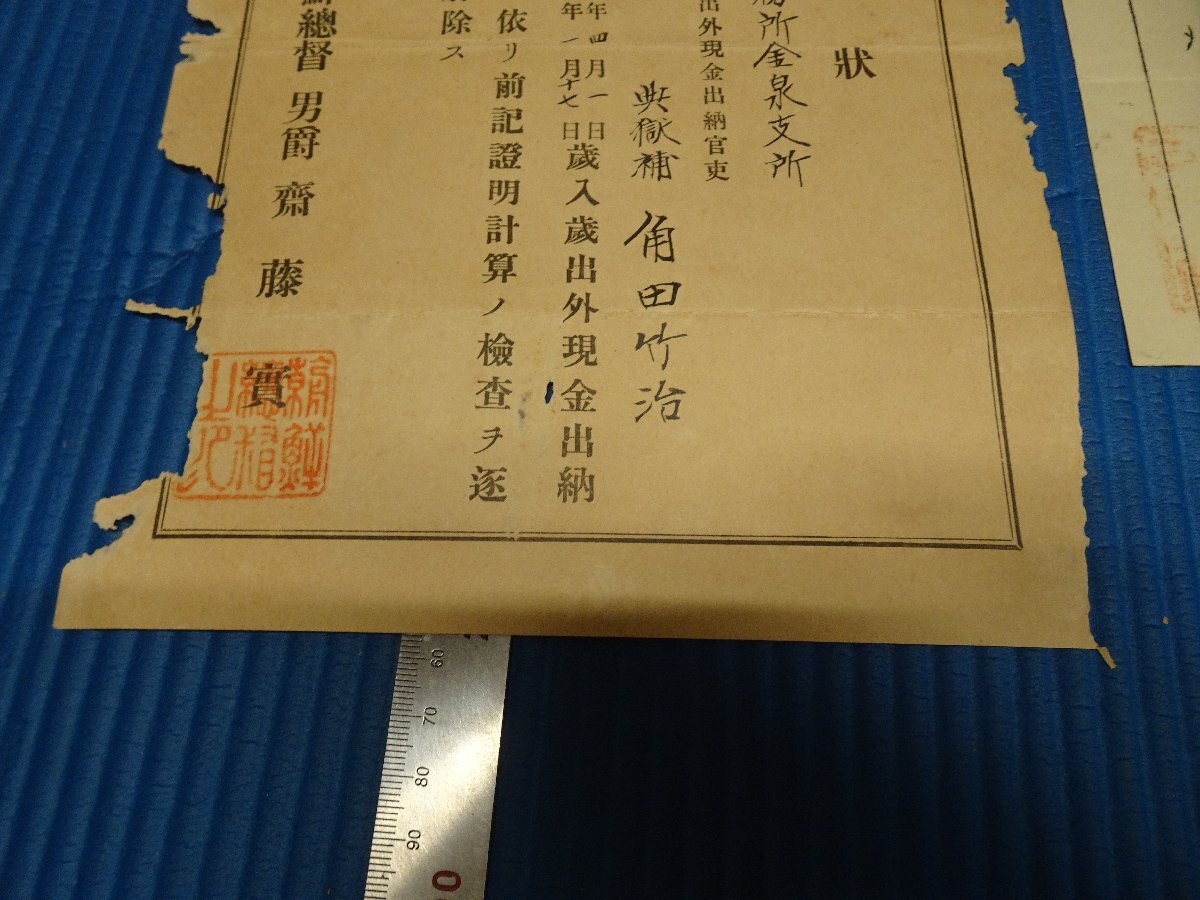 狀
務所金泉支所
出外現金出納官吏
典獄補 角田竹治
年四月一日
年一月十七日
歲入歲出外現金出納
依リ前記證明計算ノ檢查ヲ逐
除ス
總督 男爵 齋藤 實
朝鮮
總督
之印
60
70
80
90